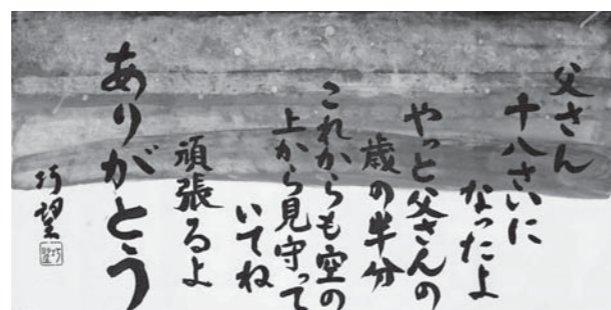 父さん
十八さいに
なったよ
やっと父さんの
歳の半分
これからも空の
上から見守って
いてね
頑張るよ
ありがとう
巧望